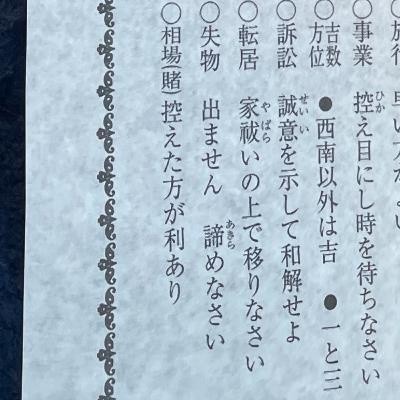 ○旅行 早い方がよい
○事業 控え目にし時を待ちなさい
○吉数方位 ●西南以外は吉 ●一と三
○訴訟 誠意を示して和解せよ
○転居 家祓いの上で移りなさい
○失物 出ません 諦めなさい
○相場(賭) 控えた方が利あり